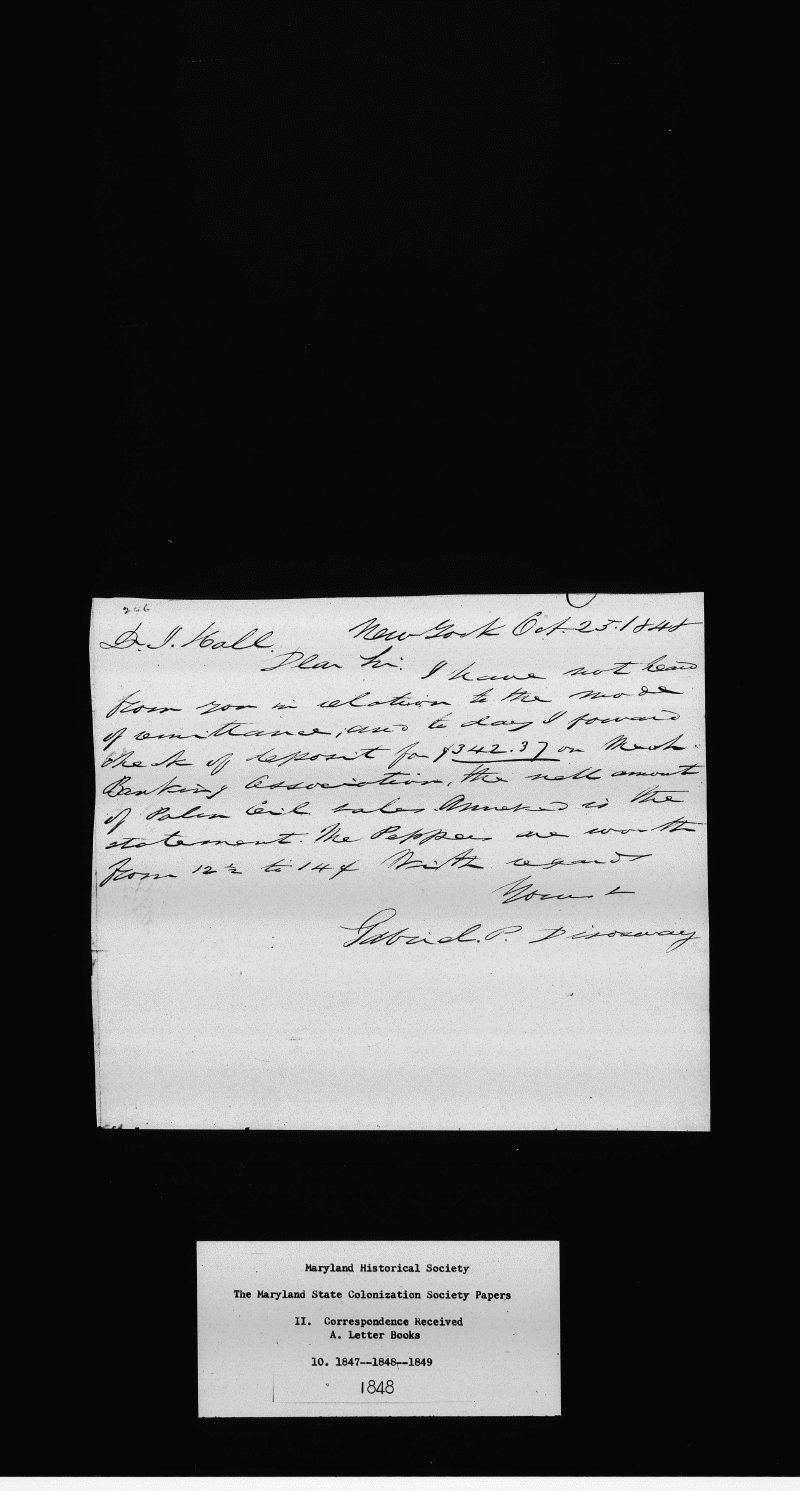 246
New York Oct. 25. 1848
Dr. J. Hall.
Dear Sir. I have not heard
from you in relation to the mode
of remittance, and to day I forward
check of deposit for $342.37 on Mech.
Banking Association, the nett amount
of Palm Oil sales. Annexed is the
statement. The Peppers are worth
from 12½ to 14¢ With regards
Yours &
Gabriel. P. Disosway
Maryland Historical Society
The Maryland State Colonization Society Papers
II. Correspondence Received
A. Letter Books
10. 1847--1848--1849
1848